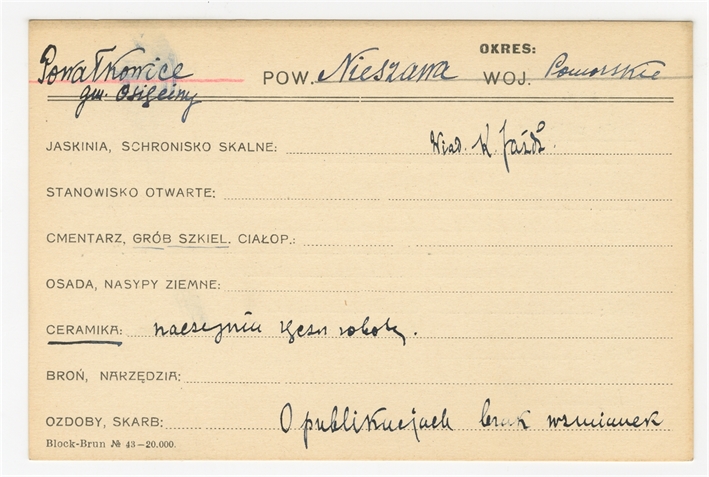 OKRES:
Powałkowice POW. Nieszawa WOJ. Pomorskie
gm. Osięciny
JASKINIA, SCHRONISKO SKALNE: Wiad. K. Jażdż.
STANOWISKO OTWARTE:
CMENTARZ, GRÓB SZKIEL. CIAŁOP.:
OSADA, NASYPY ZIEMNE:
CERAMIKA: naczyniu ręczn roboty.
BROŃ, NARZĘDZIA:
OZDOBY, SKARB: O publikacjach brak wzmianek
Block-Brun № 43-20.000.